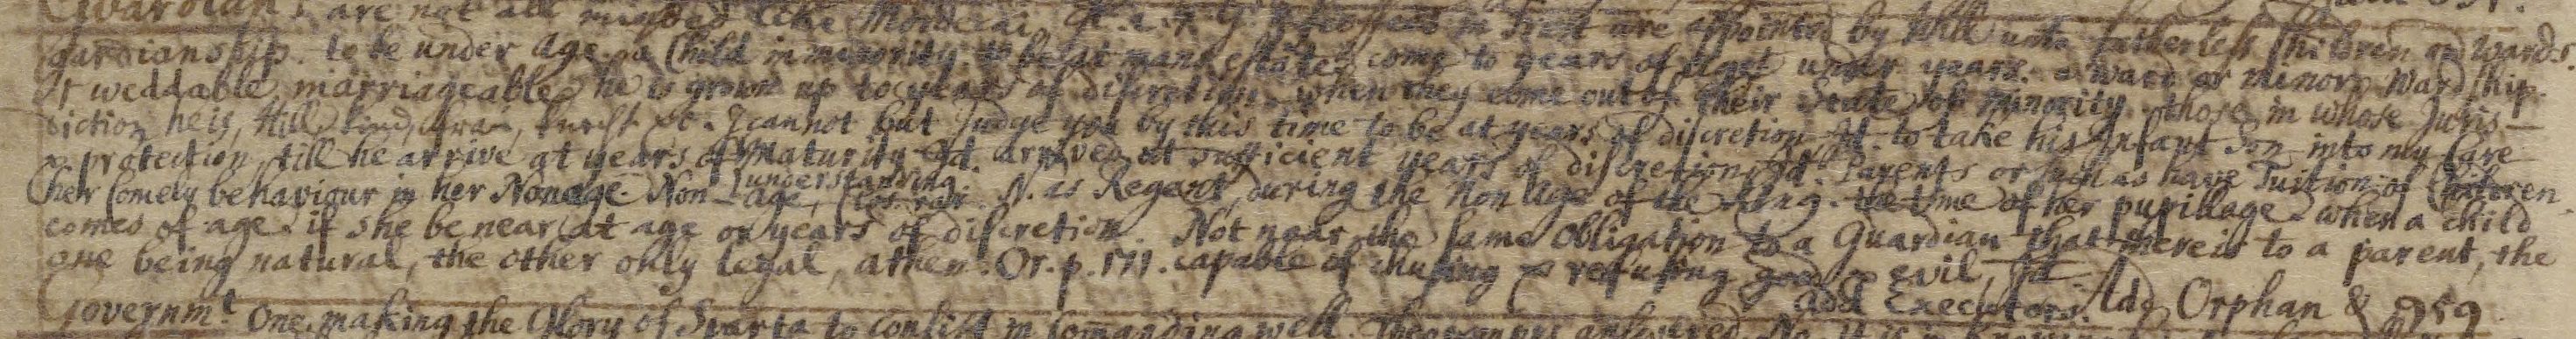 Guardians are not all minded like Mordecai in Trust are appointed by Will unto fatherless Children or Wards.
gardianship. to be under age. a Child in minority to be at mans estate, come to years of under years. a ward or minor. Wardship
It weddable, marriageable, he is grown up to years of discretion, when they come out of their State of minority. those in whose Juris-
diction he is, I cannot but Judge you by this time to be at years of discretion to take his Infant Son into my Care
& protection, till he arrive at years of Maturity arrived at sufficient years of discretion, Parents or such as have Tuition of Children
her Comely behaviour in her Nonage. Non-age, understanding N. as Regent, during the Non age of the King. the time of her pupillage. when a child
comes of age. if she be near at age or years of discretion. Not near the same obligation to a Guardian that there is to a parent, the
one being natural, the other only legal, Athen. Or. p. 171. capable of chusing & refusing good & evil,
add Executors. Orphan & 959
Governmt One making the Glory of Sparta to consist in Comanding well. Theopompus answered, No, it is